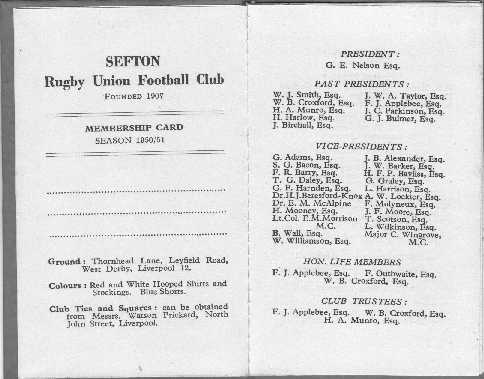 SEFTON
Rugby Union Football Club
FOUNDED 1907
MEMBERSHIP CARD
SEASON 1950/51
Ground : Thornhead Lane, Leyfield Road,
West Derby, Liverpool 12.
Colours : Red and White Hooped Shirts and
Stockings. Blue Shorts.
Club Ties and Squares : can be obtained
from Messrs. Watson Prickard, North
John Street, Liverpool.
PRESIDENT :
G. E. Nelson Esq.
PAST PRESIDENTS :
W. J. Smith, Esq. J. W. A. Taylor, Esq.
W. B. Croxford, Esq. F. J. Applebee, Esq.
H. A. Munro, Esq. J. C. Parkinson, Esq.
H. Harlow, Esq. G. J. Bulmer, Esq.
J. Birchall, Esq.
VICE-PRESIDENTS :
G. Adams, Esq. J. B. Alexander, Esq.
S. G. Bacon, Esq. J. W. Barker, Esq.
F. R. Barry, Esq. H. F. P. Bayliss, Esq.
T. G. Daley, Esq. G. Graley, Esq.
G. P. Harnden, Esq. L. Harrison, Esq.
Dr. H.J. Beresford-Knox A. W. Lockier, Esq.
Dr. E. M. McAlpine F. Molyneux, Esq.
H. Mooney, Esq. J. F. Moore, Esq.
Lt.Col. E.M.Morrison T. Scotson, Esq.
M.C. L. Wilkinson, Esq.
B. Wall, Esq. Major C. Wingrove,
W. Williamson, Esq. M.C.
HON. LIFE MEMBERS
F. J. Applebee, Esq. F. Outhwaite, Esq.
W. B. Croxford, Esq.
CLUB TRUSTEES :
F. J. Applebee, Esq. W. B. Croxford, Esq.
H. A. Munro, Esq.